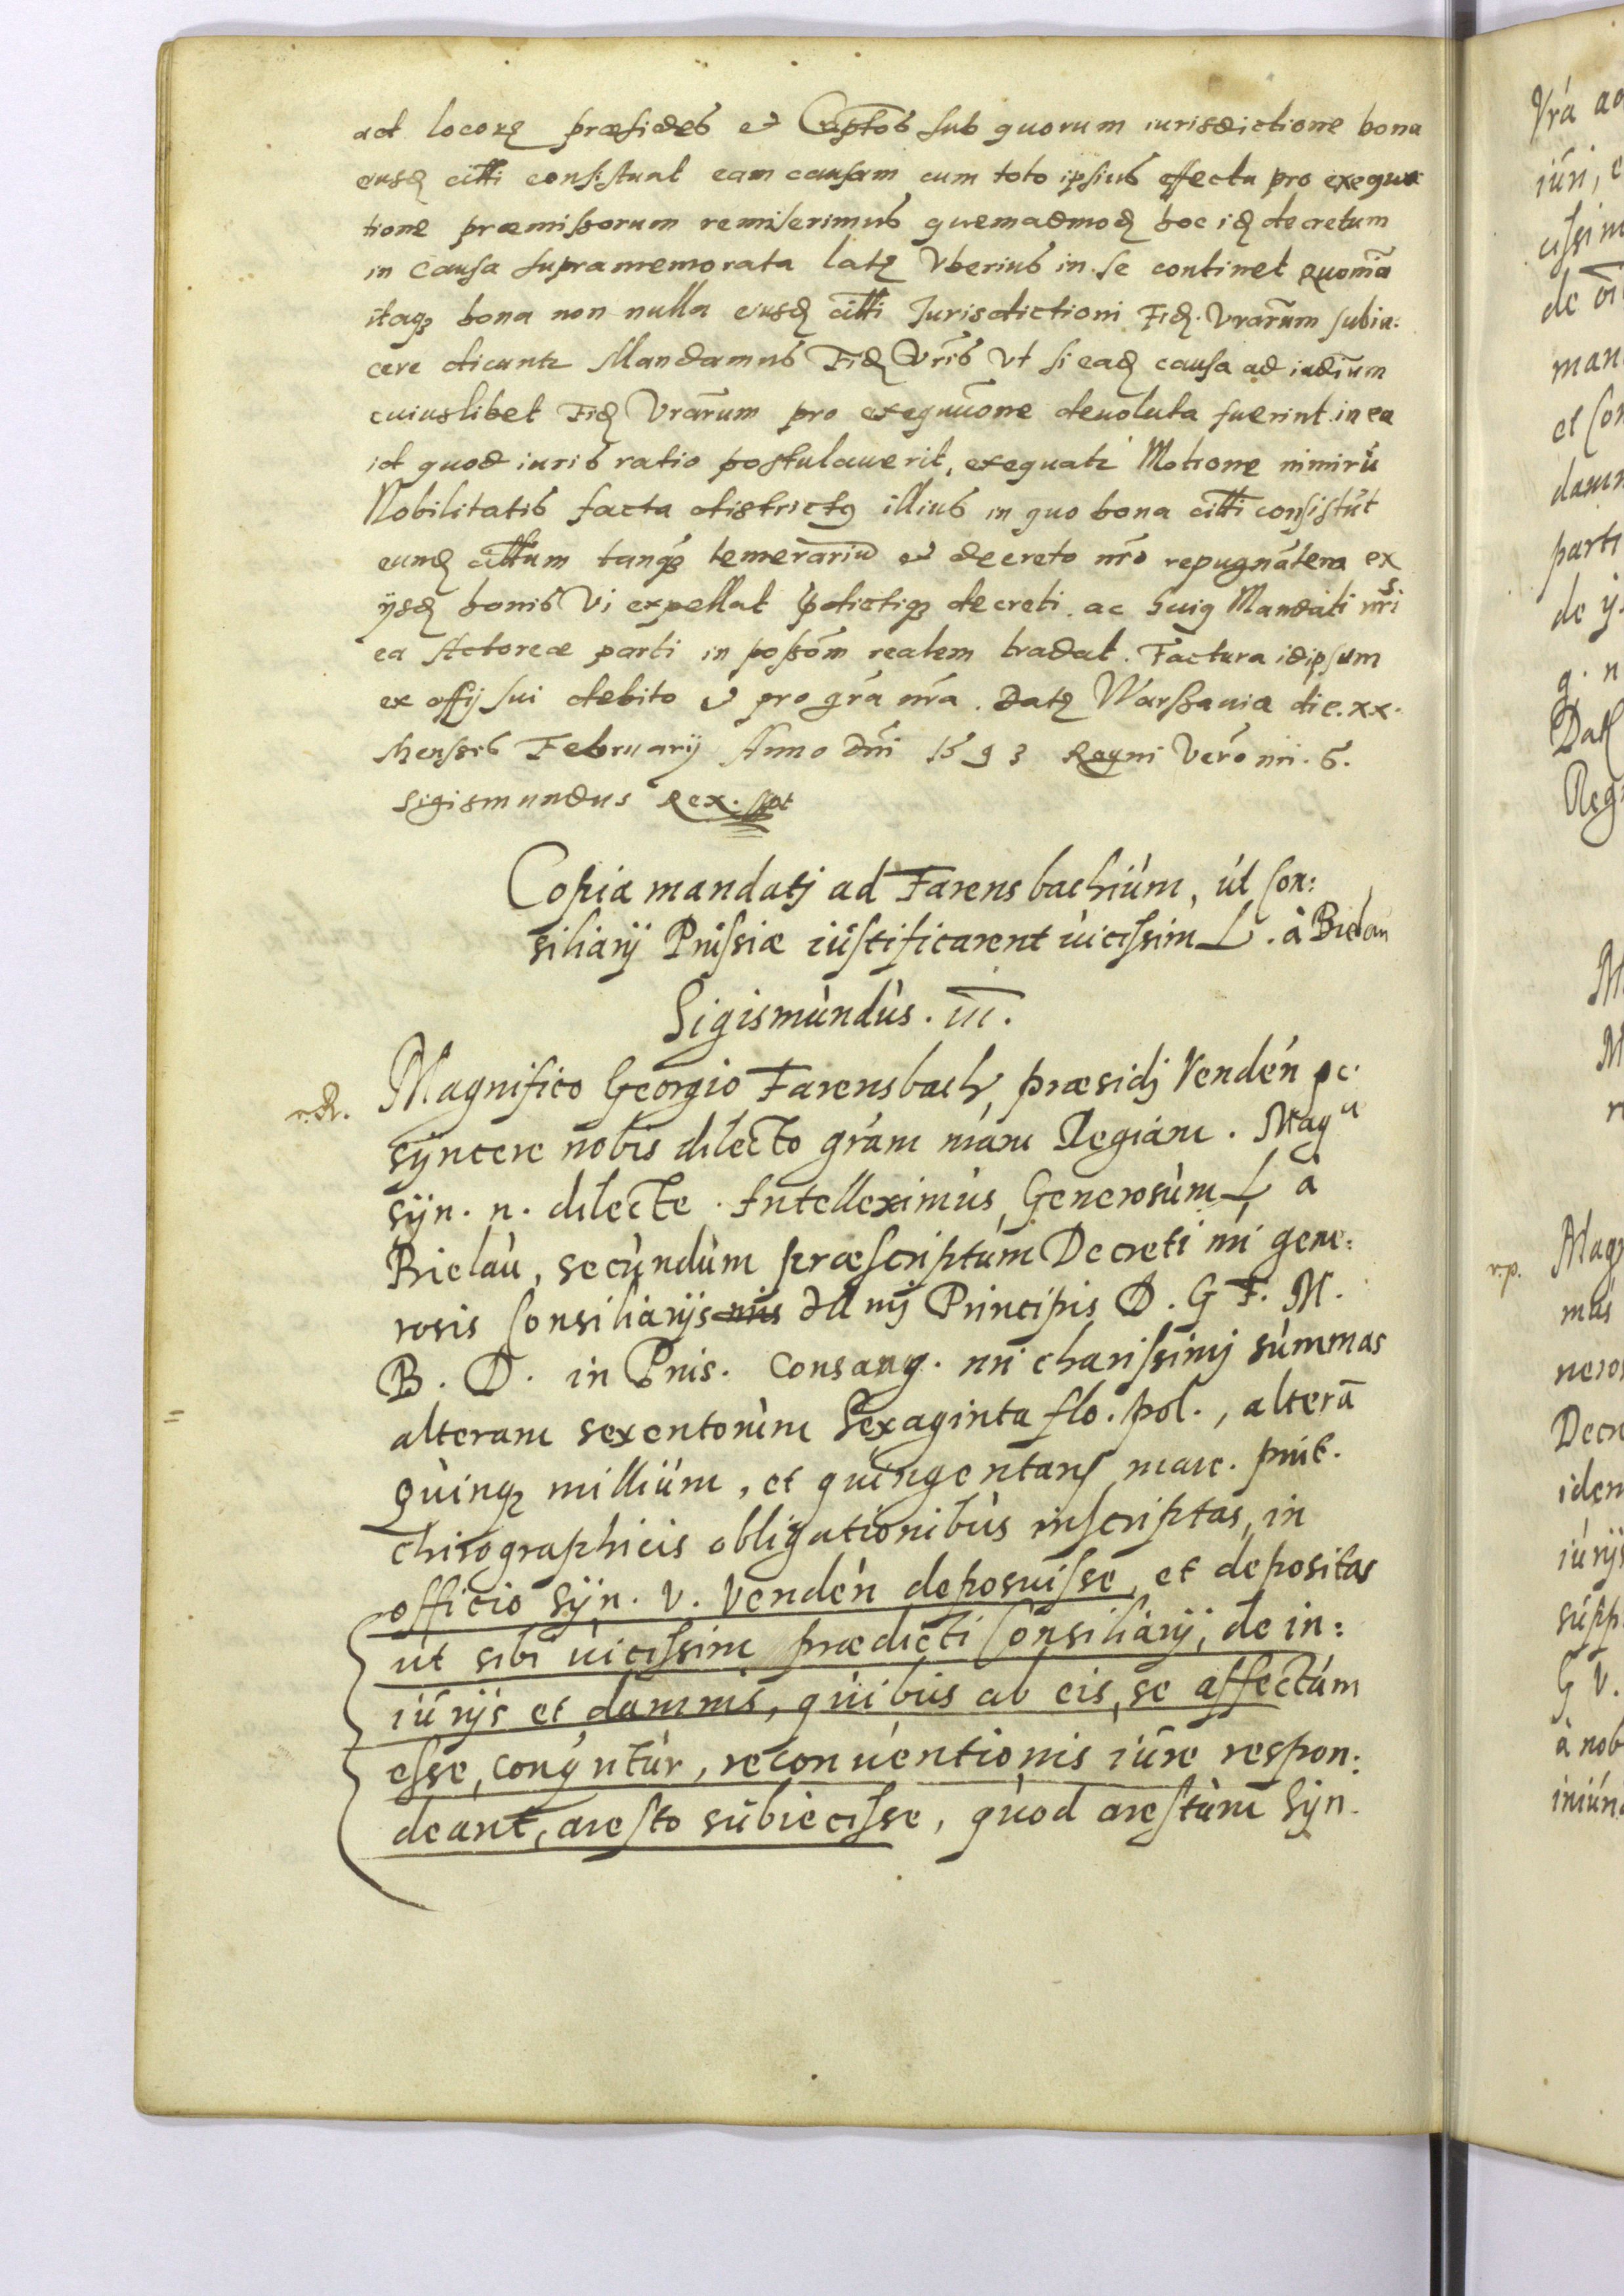 ad locorꝫ præsides et Captos sub quorum iurisdictione bona
eiusꝗ citti consistunt eam causam cum toto ipsius effectu pro exequu
tione præmissorum remiserimus quemadmodꝗ hoc idꝗ decretum
in Causa supramemorata latꝫ Vberius in se continet Quoniā
itaqꝫ bona non nulla eiusdꝗ citti Jurisdictioni Fidꝗ. Vrarum subia:
cere dicuntꝛ Mandamus Fidꝗ Vris Vt si eadꝗ causa ad iudium
cuiuslibet Fidꝗ Vrarum pro exequuone deuoluta fuerint in ea
id quod iuris ratio postulauerit, exequatꝛ Motione nimirū
Nobilitatis facta districtꝯ illius in quo bona citti consistūt
eundꝗ cittum tanqꝫ temerariū et decreto nro repugnātem ex
ijsdꝗ bonis Vi expellat pdictiqꝫ decreti ac huiꝯ Mandati nri
ea Actoreæ parti in possōm realem tradat. Factura idipsum
ex offij sui debito et pro gra nra. Datꝫ Warssauiæ die. xx.
Mensis February Anno dni 1593 Regni Vero nri. 6.
Sigismundus Rex. sspt
Copia mandatj ad Farensbachium, ut Con:
siliarij Prussiæ iustificarent uicissim L. à Bielau
Sigismundus. III.
r. R. Magnifico Georgio Farensbach, præsidj Venden pc.
syncere nobis dilecto gram nram Regiam. Magce
syn. n. dilecte. Intelleximus, Generosum L à
Bielau, secundum præscriptum Decreti nri gene:
rosis Consiliarijs nris Illmj Principis D. G F. M.
B. D. in Prus. Consang. nri charissimj summas
alteram sexentorum Sexaginta flo. pol., alterā
quinqꝫ millium, et quingentarꝫ marc. prut.
chirographicis obligationibus inscriptas, in
officio Syn. V. Venden deposuisse, et depositas
ut sibi uicissim prædicti Consiliarij, de in:
iurijs et damnis, quibus ab eis, se affectum
esse, conqntur, reconuentionis iure respon:
deant, aresto subiecisse, quod arestum Syn.